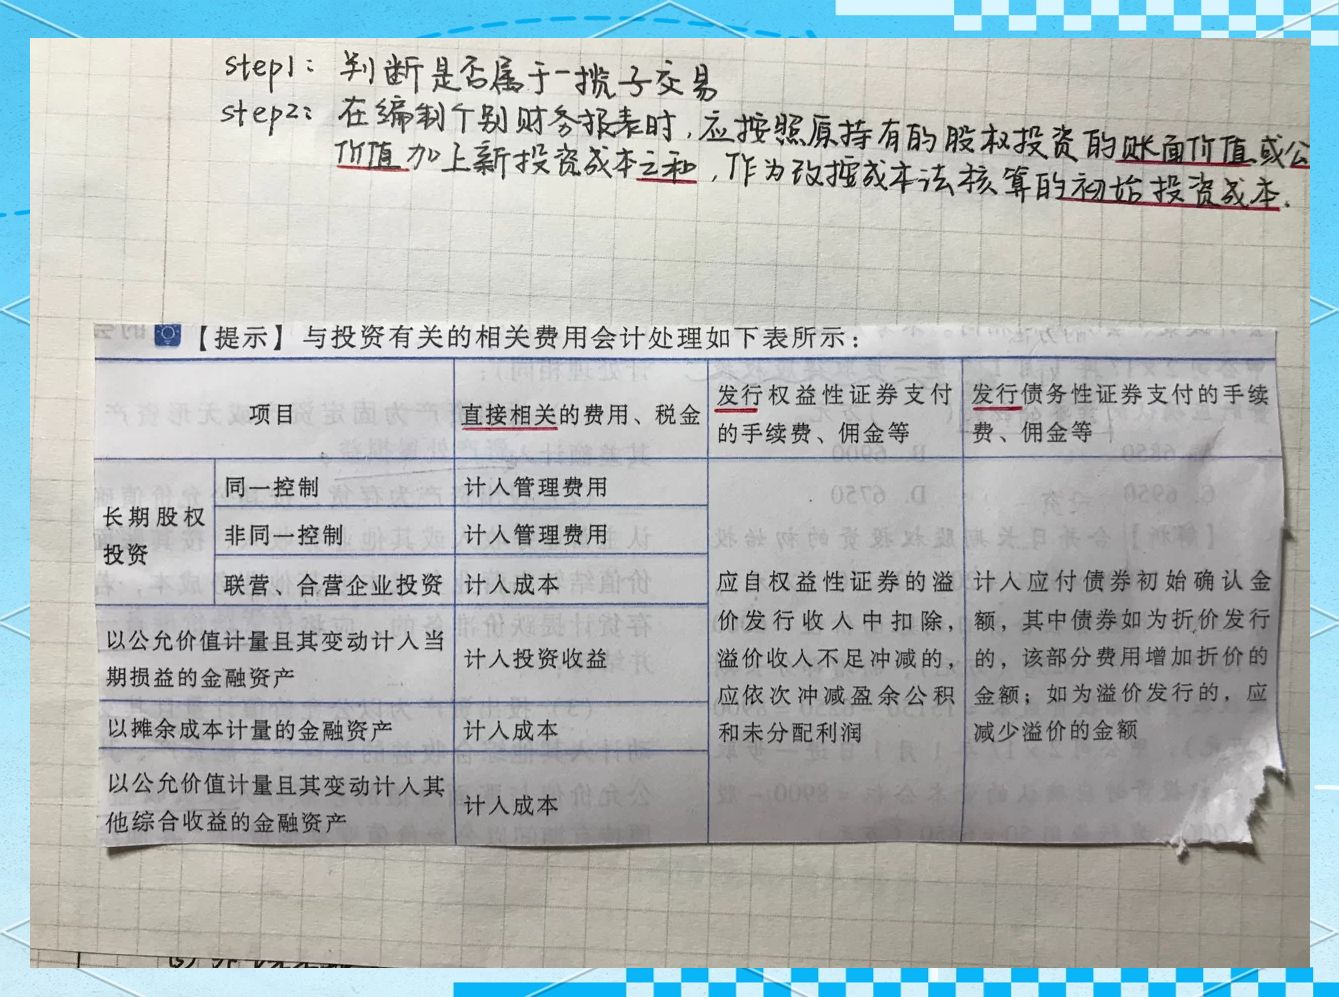 step1: 判断是否属于一揽子交易
step2: 在编制个别财务报表时,应按照原持有的股权投资的账面价值或公
价值加上新投资成本之和,作为改按成本法核算的初始投资成本.
【提示】与投资有关的相关费用会计处理如下表所示：
项目
直接相关的费用、税金
发行权益性证券支付
的手续费、佣金等
发行债务性证券支付的手续
费、佣金等
长期股权
投资
同一控制
计入管理费用
非同一控制
计入管理费用
联营、合营企业投资
计入成本
以公允价值计量且其变动计入当
期损益的金融资产
计入投资收益
以摊余成本计量的金融资产
计入成本
以公允价值计量且其变动计入其
他综合收益的金融资产
计入成本
应自权益性证券的溢
价发行收入中扣除，
溢价收入不足冲减的，
应依次冲减盈余公积
和未分配利润
计入应付债券初始确认金
额，其中债券如为折价发行
的，该部分费用增加折价的
金额；如为溢价发行的，应
减少溢价的金额